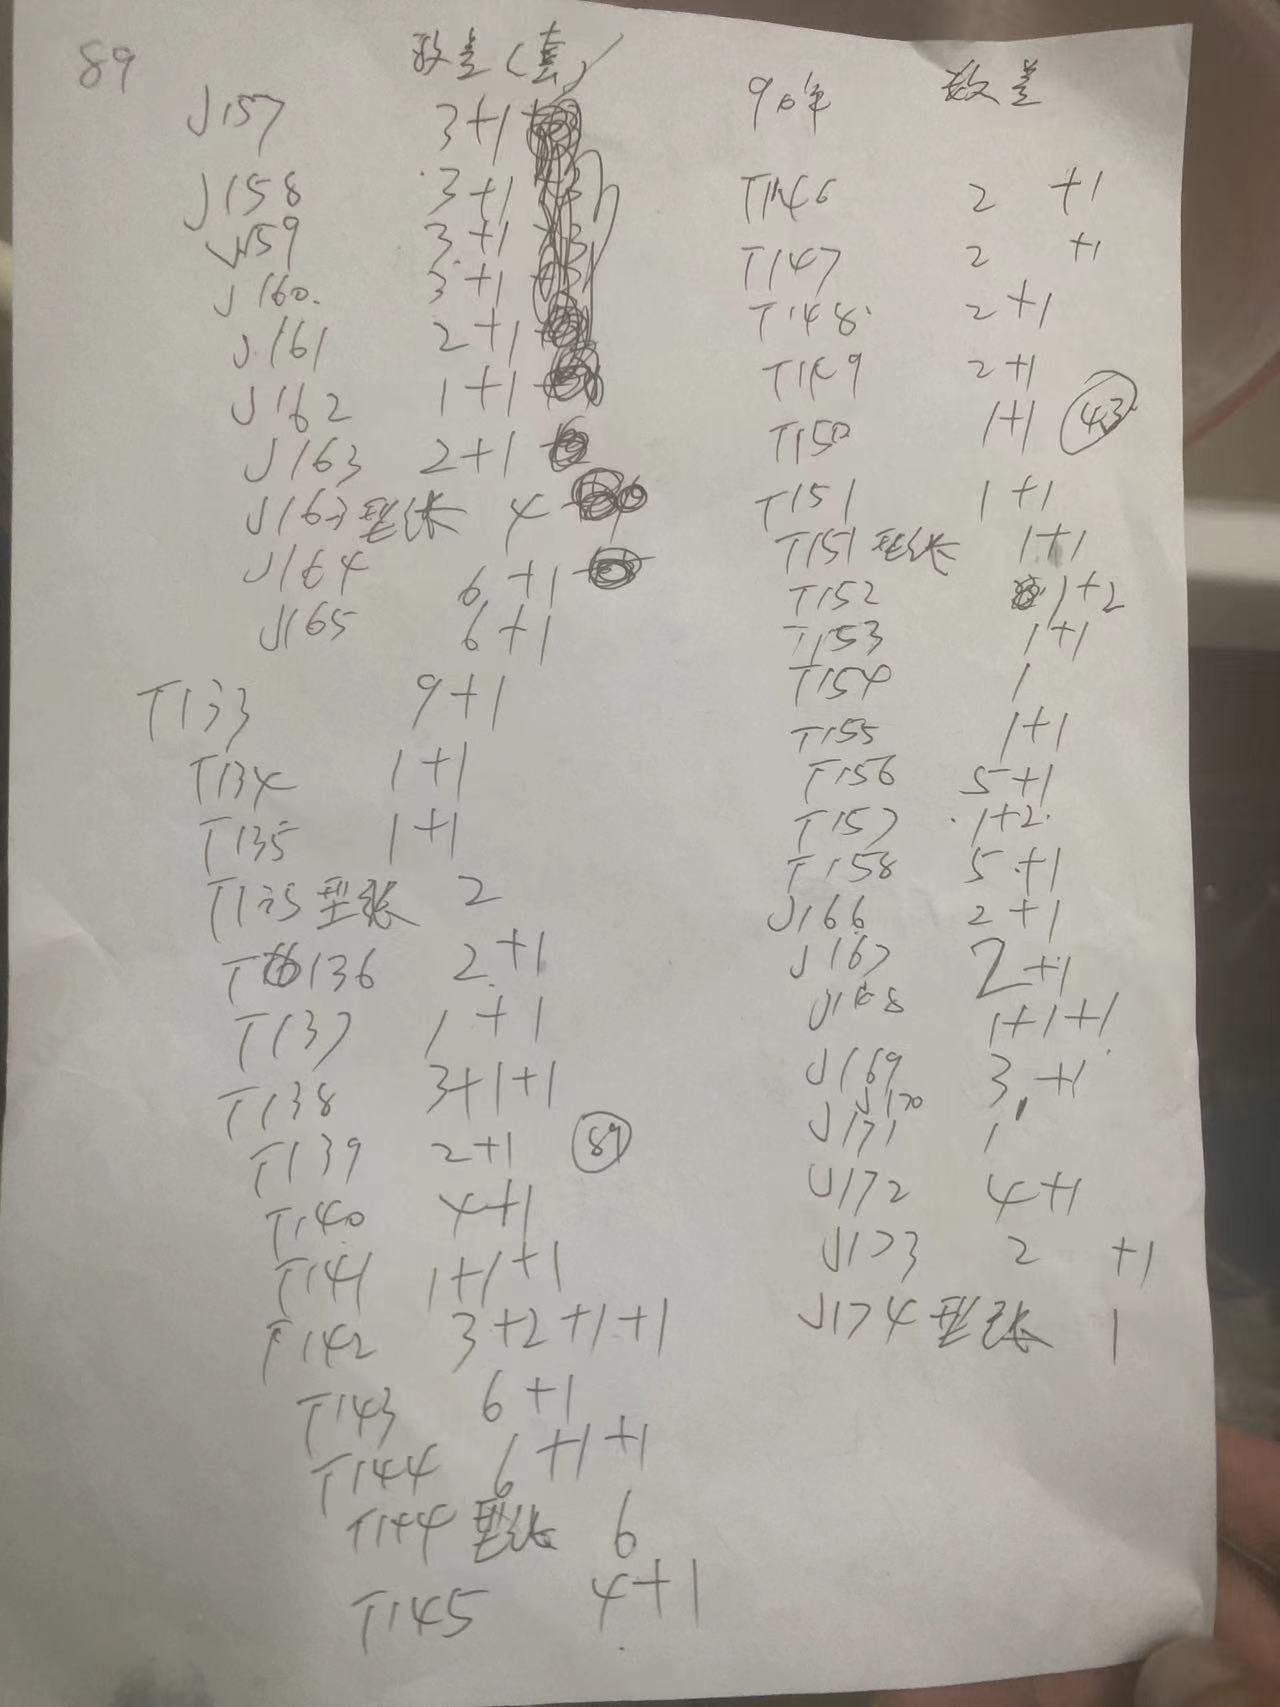 89 数量(套)
J157 3+1
J158 3+1
J159 3+1
J160 3+1
J161 2+1
J162 1+1
J163 2+1
J163型张 4
J164 6+1
J165 6+1
T133 9+1
T134 1+1
T135 1+1
T135型张 2
T136 2+1
T137 1+1
T138 3+1+1
T139 2+1 89
T140 4+1
T141 1+1+1
T142 3+2+1+1
T143 6+1
T144 6+1+1
T144型张 6
T145 4+1
90年 数量
T146 2 +1
T147 2 +1
T148 2+1
T149 2+1
T150 1+1 43
T151 1+1
T151型张 1+1
T152 1+2
T153 1+1
T154 1
T155 1+1
T156 5+1
T157 1+2
T158 5+1
J166 2+1
J167 2+1
J168 1+1+1
J169 3+1
J170
J171 1
J172 4+1
J173 2 +1
J174型张 1